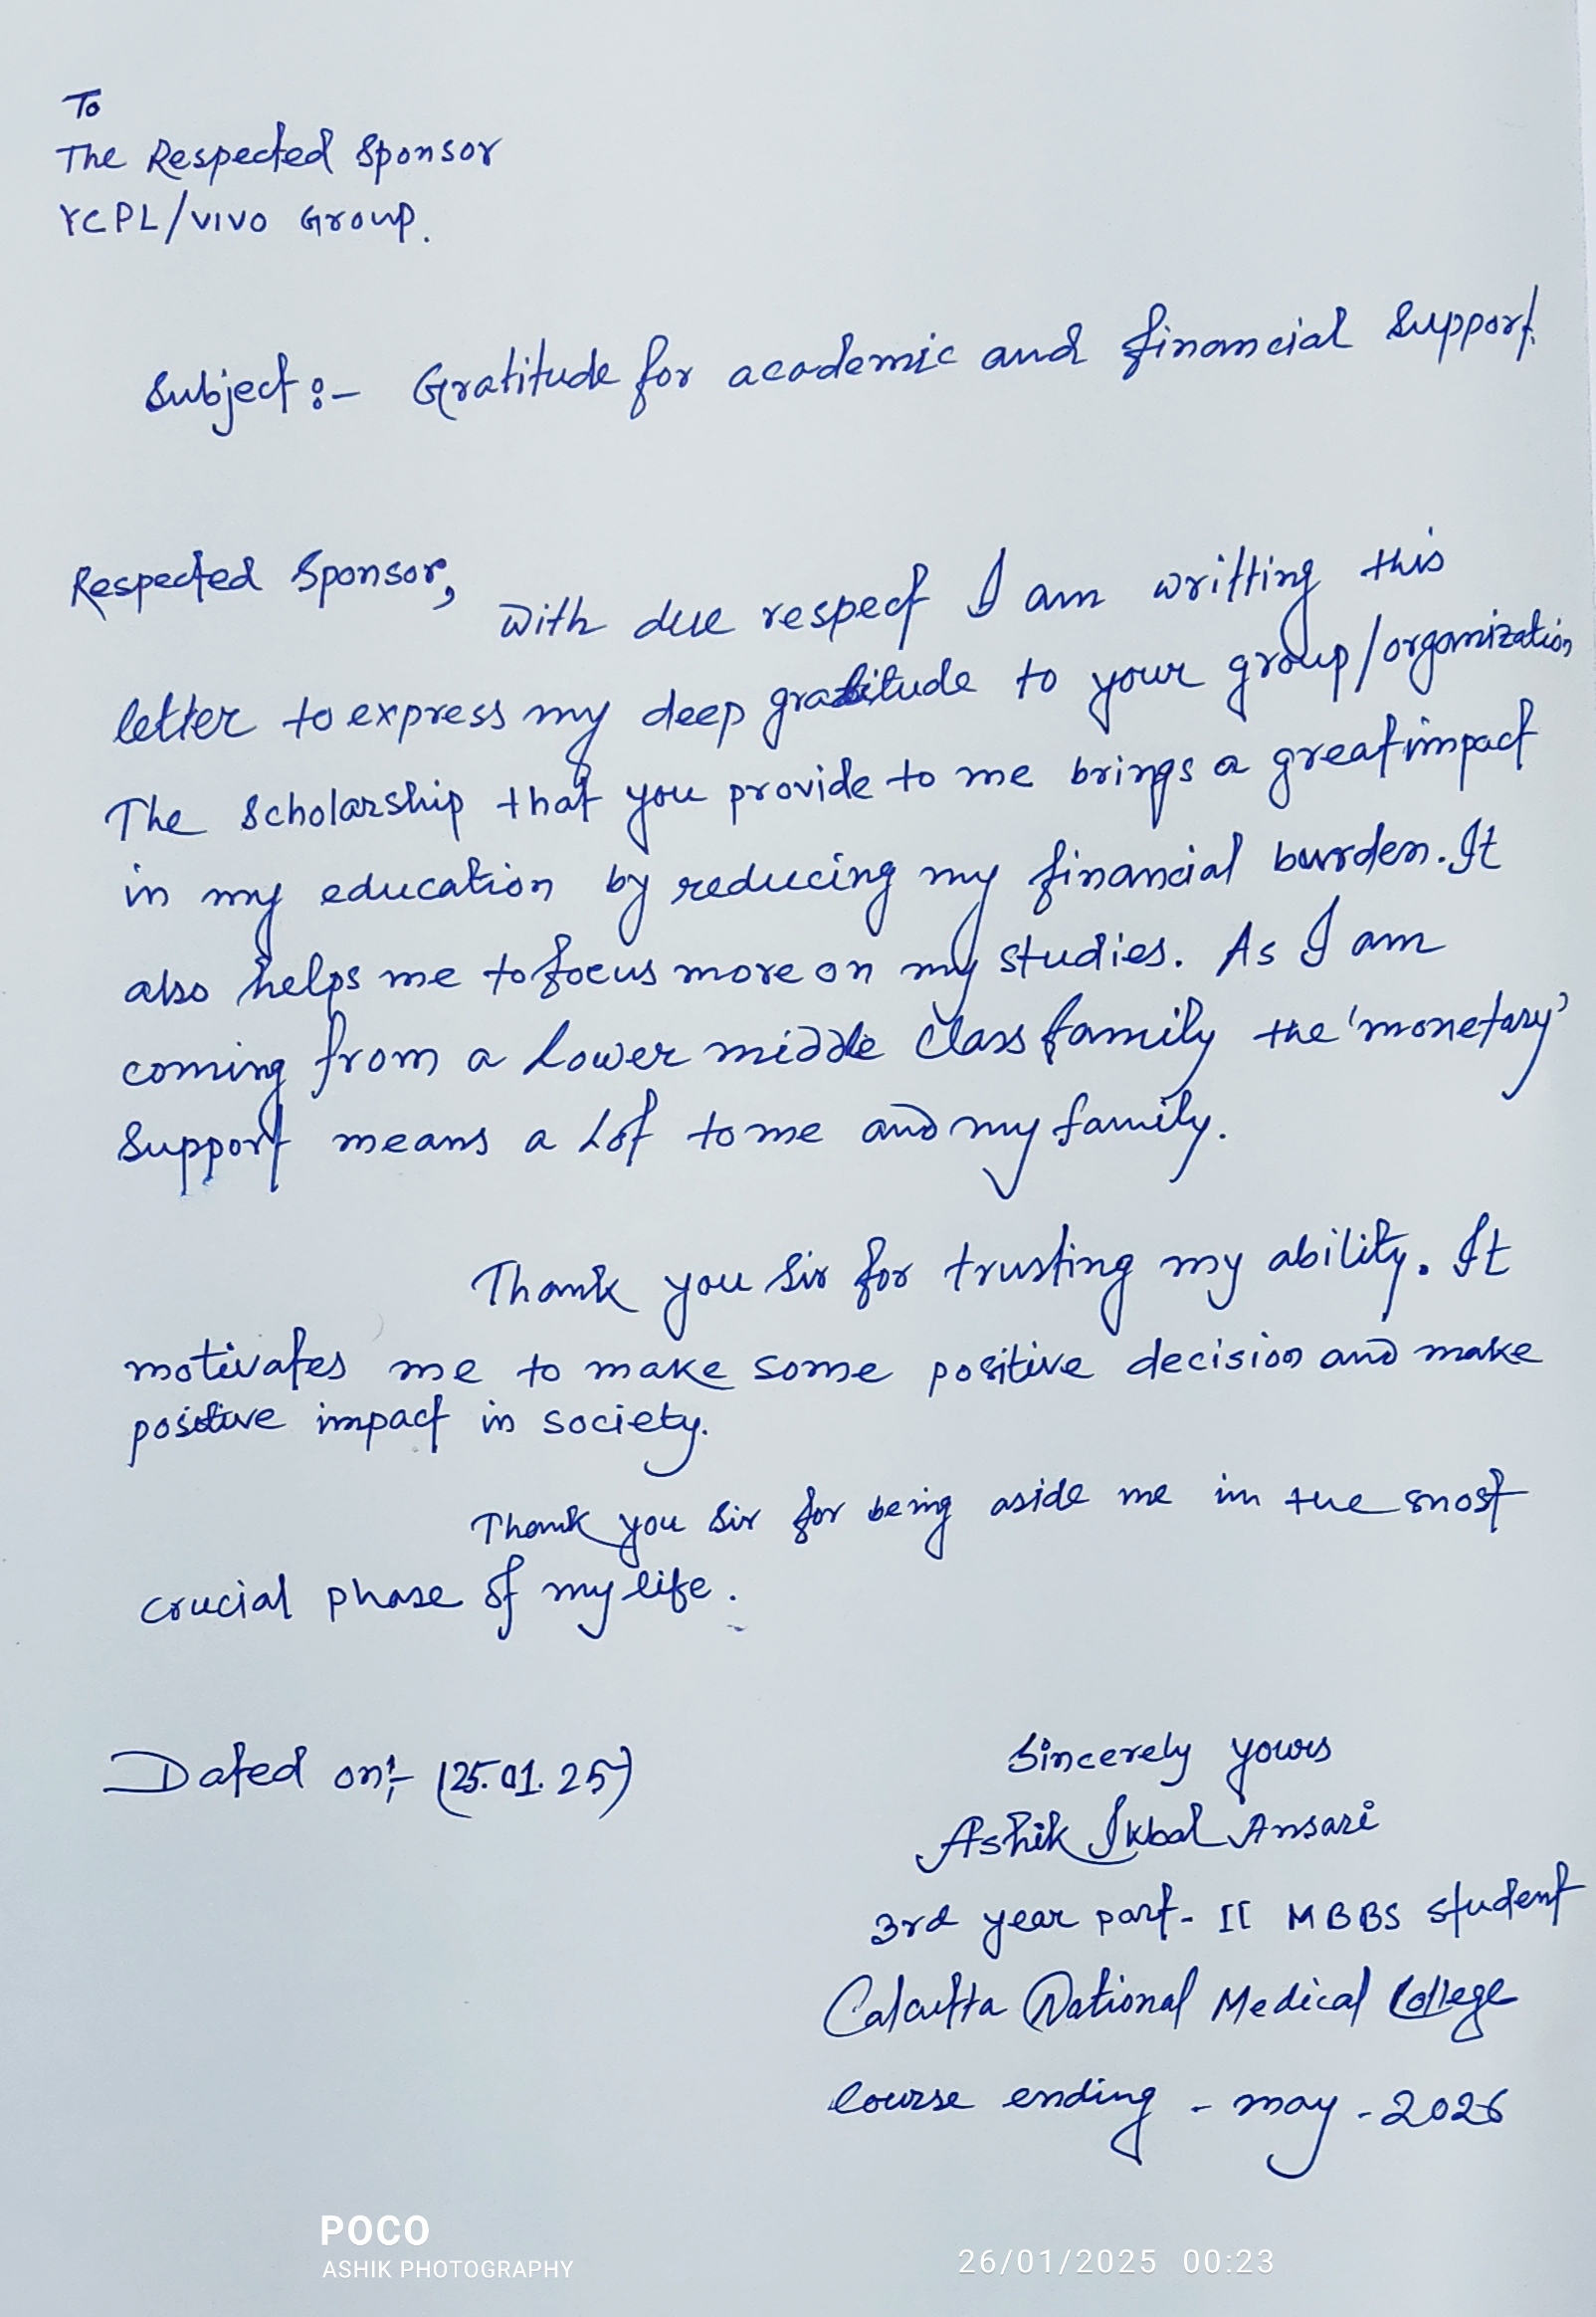 To
The Respected Sponsor
YCPL/VIVO Group.
Subject:- Gratitude for academic and financial Support.
Respected Sponsor,
With due respect I am writting this
letter to express my deep gratitude to your group/organization
The Scholarship that you provide to me brings a great impact
in my education by reducing my financial burden. It
also helps me to focus more on my studies. As I am
coming from a Lower middle class family the 'monetary'
Support means a lot to me and my family.
Thank you Sir for trusting my ability. It
motivates me to make some positive decision and make
positive impact in society.
Thank you Sir for being aside me in the most
crucial phase of my life.
Dated on:- (25.01.25)
Sincerely yours
Ashik Ikbal Ansari
3rd year part-II MBBS student
Calcutta National Medical College
Course ending - may - 2026
POCO
ASHIK PHOTOGRAPHY
26/01/2025 00:23